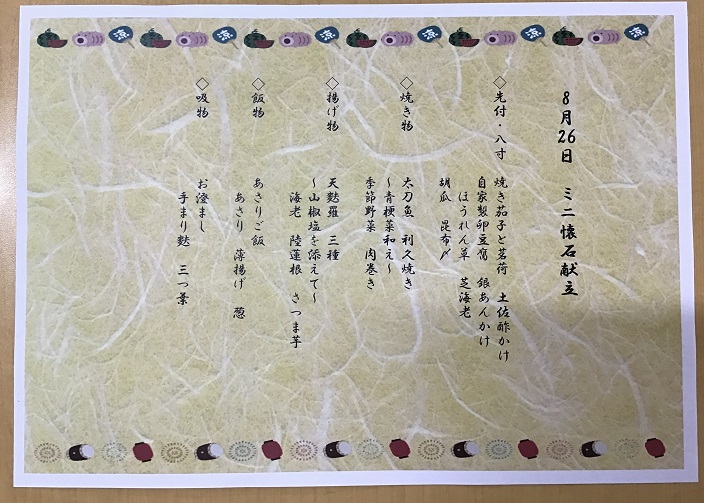 8月26日 ミニ懐石献立
◇先付・八寸 焼き茄子と茗荷 土佐酢かけ
自家製卵豆腐 銀あんかけ
ほうれん草 芝海老
胡瓜 昆布〆
◇焼き物 太刀魚 利久焼き
～青梗菜和え～
季節野菜 肉巻き
◇揚げ物 天麩羅 三種
～山椒塩を添えて～
海老 陸蓮根 さつま芋
◇飯物 あさりご飯
あさり 薄揚げ 葱
◇吸物 お澄まし
手まり麩 三つ葉
涼 涼 涼 涼 涼 涼